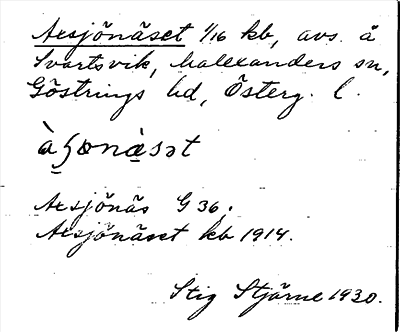 Axsjönäset 1/16 kb, avs. å
Svartsvik, Malexanders sn,
Göstrings hd, Österg. l.
Axsjönäs G 36;
Axsjönäset kb 1914.
Stig Stjärne 1930.